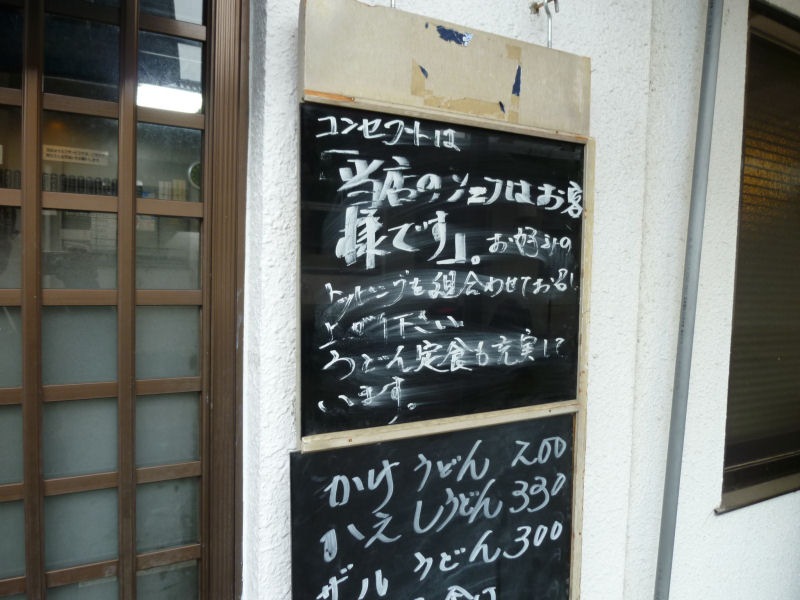 コンセプートは
「当店のシェフはお客
様です」。お好みの
トッピングを組合わせてお召し
上がり下さい
うどん定食も充実して
います。
かけうどん 200
かえしうどん 330
ザルうどん 300